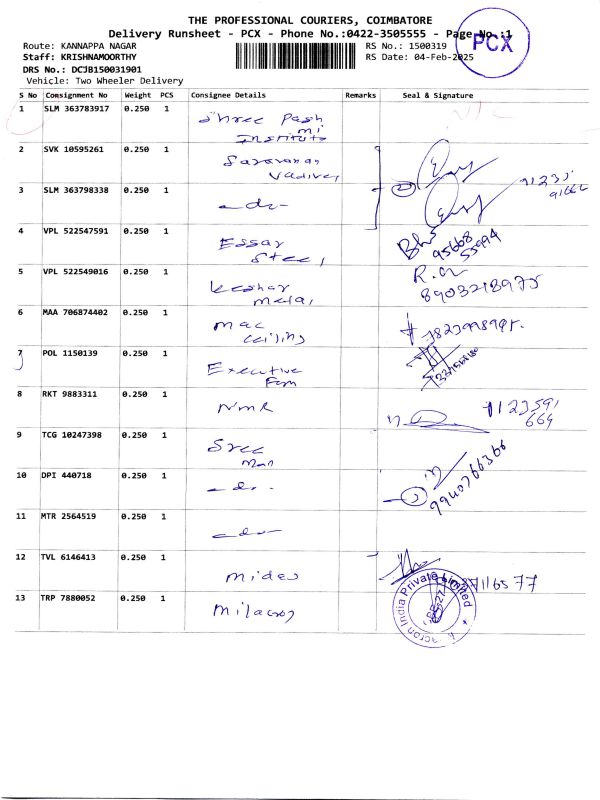 THE PROFESSIONAL COURIERS, COIMBATORE
Delivery Runsheet - PCX - Phone No.:0422-3505555 - Page No.:1
PCX
Route: KANNAPPA NAGAR
RS No.: 1500319
Staff: KRISHNAMOORTHY
RS Date: 04-Feb-2025
DRS No.: DCJB150031901
Vehicle: Two Wheeler Delivery
S No Consignment No Weight PCS Consignee Details Remarks Seal & Signature
1 SLM 363783917 0.250 1 Shree Pash
mi
Institute
2 SVK 10595261 0.250 1 Saravanan
Vadivel
3 SLM 363798338 0.250 1 -do-
4 VPL 522547591 0.250 1 Essar
Steel
95668
55994
5 VPL 522549016 0.250 1 Keshar
8903218975
6 MAA 706874402 0.250 1 Mac
ceiling
7 POL 1150139 0.250 1 Executive
8 RKT 9883311 0.250 1 NMR
664
9 TCG 10247398 0.250 1 Sree
10 DPI 440718 0.250 1 -do-
9940766366
11 MTR 2564519 0.250 1 -do-
12 TVL 6146413 0.250 1
13 TRP 7880052 0.250 1 Milacron
India Private Limited